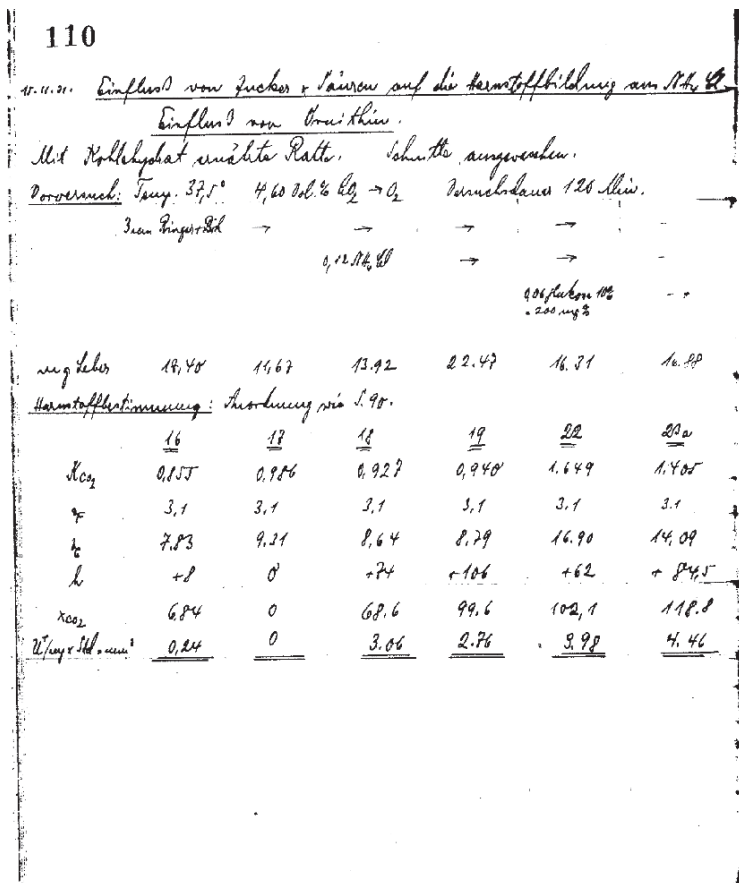 110
15.11.31. Einfluß von Zucker + Säuren auf die Harnstoffbildung aus NH4Cl
Einfluß von Ornithin.
Mit Kohlehydrat ernährte Ratte. Schnitte ausgewaschen.
Vorversuch: Temp. 37,5° 4,60 Vol.% CO2 → O2 Versuchsdauer 120 Min.
3 ccm Ringer+Bik → → → → -
0,12 NH4Cl → → -
0,06 Glukose 10% - -
= 200 mg%
mg Leber 14,40 11,67 13.92 22.47 16.31 16.88
Harnstoffbestimmung: Anordnung wie S. 90.
16 17 18 19 22 23a
Kco2 0,855 0,986 0,927 0,940 1.649 1.405
vF 3,1 3,1 3,1 3,1 3.1 3.1
7.83 9.21 8,64 8.79 16.90 14,09
h +8 0 +74 +106 +62 + 84,5
xco2 6,84 0 68,6 99.6 102,1 118.8
0,24 0 3.06 2.76 3.98 4.46